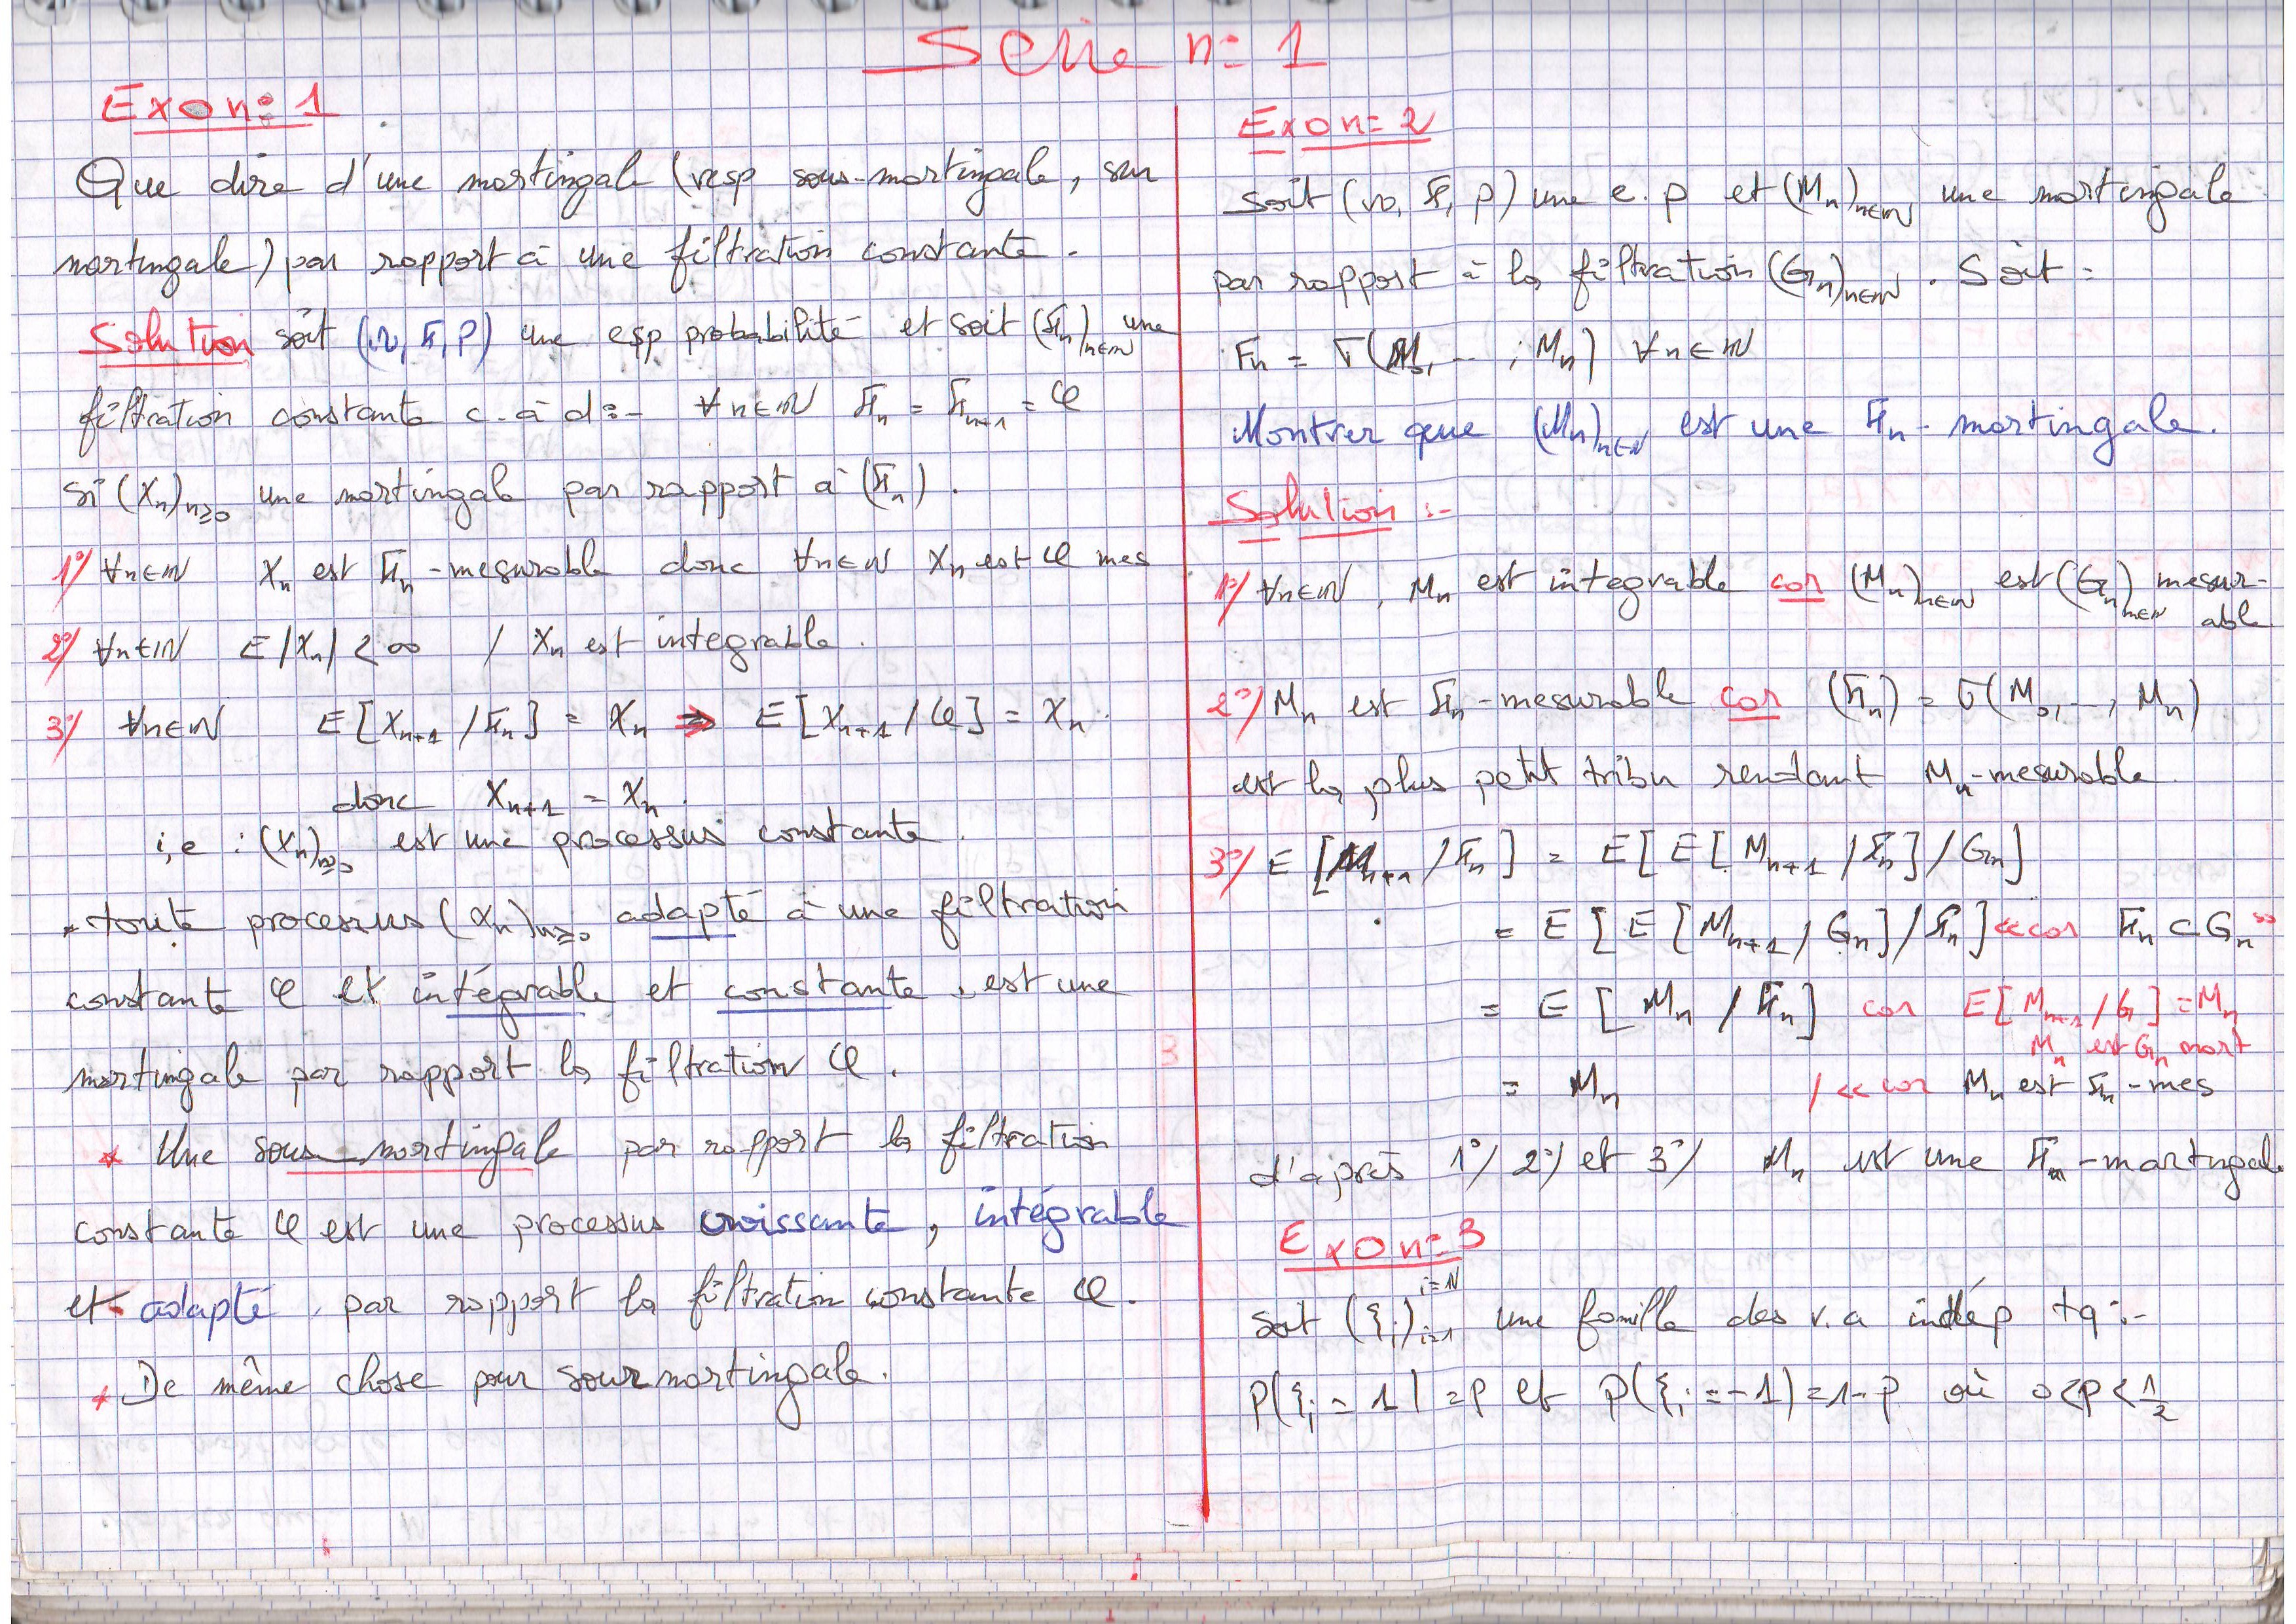 Serie n= 1
Exo n= 1
Que dire d'une martingale (resp sous-martingale, sur
martingale) par rapport à une filtration constante.
Solution soit (Ω, F, P) une esp probabilité et soit (Fn)n∈N une
filtration constante c-à-d:- ∀n∈N Fn = Fn+1 = φ
si (Xn)n≥0 une martingale par rapport à (Fn).
1°/ ∀n∈N Xn est Fn-mesurable donc ∀n∈N Xn est φ mes
2°/ ∀n∈N E|Xn| < ∞ / Xn est integrable.
3°/ ∀n∈N E[Xn+1 / Fn] = Xn ⇒ E[Xn+1 / φ] = Xn.
donc Xn+1 = Xn.
i,e : (Xn)n≥0 est une processus constante.
* toute processus (Xn)n≥0 adapté à une filtration
constante φ et intégrable et constante, est une
martingale par rapport la filtration φ.
* Une sous-martingale par rapport la filtration
constante φ est une processus croissante, intégrable
et adapté par rapport la filtration constante φ.
* De même chose pour surmartingale.
Exo n= 2
Soit (Ω, F, P) une e.p et (Mn)n∈N une martingale
par rapport à la filtration (Gn)n∈N. Soit :
Fn = σ(M0, - - ; Mn) ∀n∈N
Montrer que (Mn)n∈N est une Fn-martingale.
Solution :-
1°/ ∀n∈N, Mn est integrable car (Mn)n∈N est (Gn)n∈N mesur-
able
2°/ Mn est Fn-mesurable car (Fn) = σ(M0, - -, Mn)
est la plus petit tribu rendant Mn-mesurable.
3°/ E[Mn+1 / Fn] = E[E[Mn+1 / Fn] / Gn]
= E[E[Mn+1 / Gn] / Fn] «car Fn ⊂ Gn»
= E[Mn / Fn] car E[Mn+1 / G] = Mn
Mn est Gn mart
= Mn / «car Mn est Fn-mes
d'après 1°/ 2°/ et 3°/ Mn est une Fn-martingal
Exo n= 3
Soit (ξi)i=1 i=N une famille des v.a indép tq :-
P(ξi = 1) = p et P(ξi = -1) = 1-p où 0<p<1/2